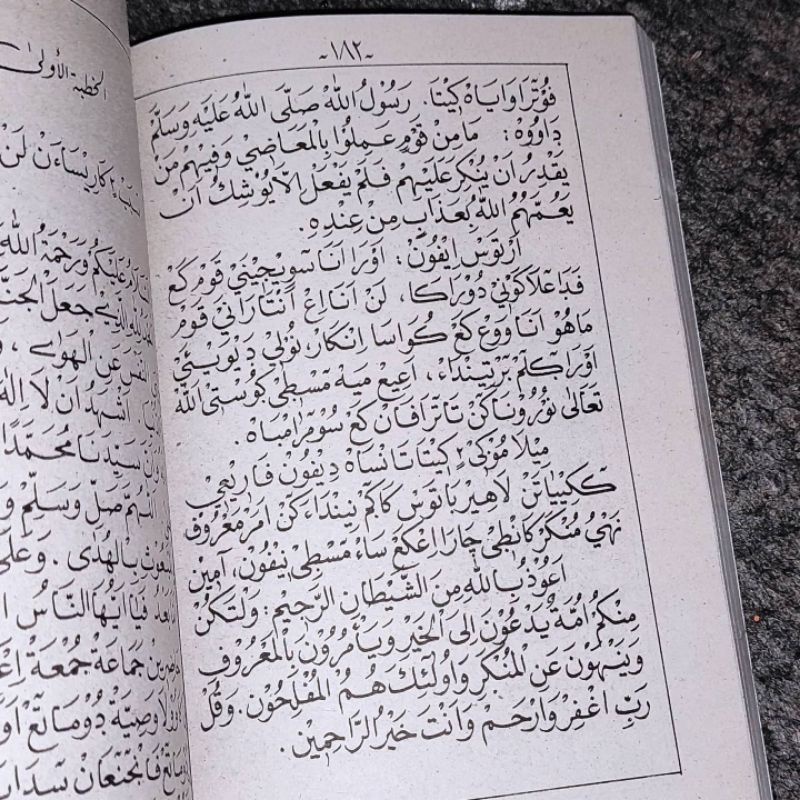 ~١٨٢~
فُوْتْرَا وَايَاهْ كِيْتَا. رَسُوْلُ اللهْ صَلَّى اللهُ عَلَيْهِ وَسَلَّمَ
دَاوُوْهْ : مَامِنْ قَوْمٍ عَمِلُوْا بِالْمَعَاصِيْ وَفِيْهِمْ مَنْ
يَقْدِرُ اَنْ يُنْكِرَ عَلَيْهِمْ فَلَمْ يَفْعَلْ اِلاَّ يُوْشِكُ اَنْ
يَعُمَّهُمُ اللهُ بِعَذَابٍ مِنْ عِنْدِهِ.
اَرْتَوْسْ اِيْفُوْنْ : اَوْرَا اَنَا سَوِيْجِيْنَيْ قَوْمْ كَڠْ
فَدَا عْلَاكَوْنِيْ دُوْرَاكَا، لَنْ اَنَا اِڠْ اَنْتَارَانَيْ قَوْمْ
مَاهُوْ اَنَا وَوْڠْ كَڠْ كُوَاسَا اِنْكَارْ نُوْلِيْ دَيْوَيْئَيْ
اَوْرَا كَلَمْ بَرْتِينْدَاءْ، اَڠِيْڠْ مَيَهْ مَسْطِيْ كُوْسْتِيْ اللهْ
تَعَالَى نُوْرُوْنَاكَنْ تَاتْرَافَانْ كَڠْ سُوْمْرَامْبَاهْ.
مِيْلَا مُوْڮِيْ٢ كِيْتَا تَنْسَاهْ دِيْفُوْنْ فَارِيْڠِيْ
كَكِيْيَاتَنْ لَاهِيْرْ بَاتَوْسْ كَاڮَمْ نِيْنْدَاءَكَنْ اَمَرْ مَعْرُوْفْ
نَهِيْ مُنْكَرْ كَانْطِيْ چَارَا اِڠْكَڠْ سَاءْ مَسْطِيْنَيْفُوْنْ، آمِيْنْ
اَعُوْذُ بِاللهِ مِنَ الشَّيْطَانِ الرَّجِيْمِ : وَلْتَكُنْ
مِنْكُمْ اُمَّةٌ يَدْعُوْنَ اِلَى الْخَيْرِ وَيَأْمُرُوْنَ بِالْمَعْرُوْفِ
وَيَنْهَوْنَ عَنِ الْمُنْكَرِ وَاُولَئِكَ هُمُ الْمُفْلِحُوْنَ. وَقُلْ
رَبِّ اغْفِرْ وَارْحَمْ وَاَنْتَ خَيْرُ الرَّاحِمِيْنَ.
الخطبة الأولى
كَارِيْسَاءَنْ لَنْ
عَلَيْكُمْ وَرَحْمَةُ اللهِ
جَعَلَ الْجَنَّةَ
النَّفْسَ عَنِ الْهَوٰى،
اَشْهَدُ اَنْ لَا اِلٰهَ
سَيِّدَنَا مُحَمَّدًا
صَلِّ وَسَلِّمْ
بِالْهُدٰى. وَعَلٰى
فَيَا اَيُّهَا النَّاسُ
جَمَاعَةْ جُمْعَةْ
وَصِيَّةْ دُوْمَاتَڠْ